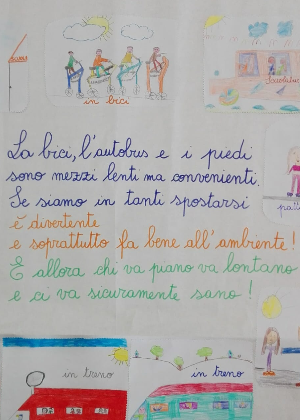 in bici
Scuolabus
La bici, l'autobus e i piedi
sono mezzi lenti ma convenienti.
Se siamo in tanti spostarsi
è divertente
e soprattutto fa bene all'ambiente!
E allora chi va piano va lontano
e ci va sicuramente sano!
in treno
in treno